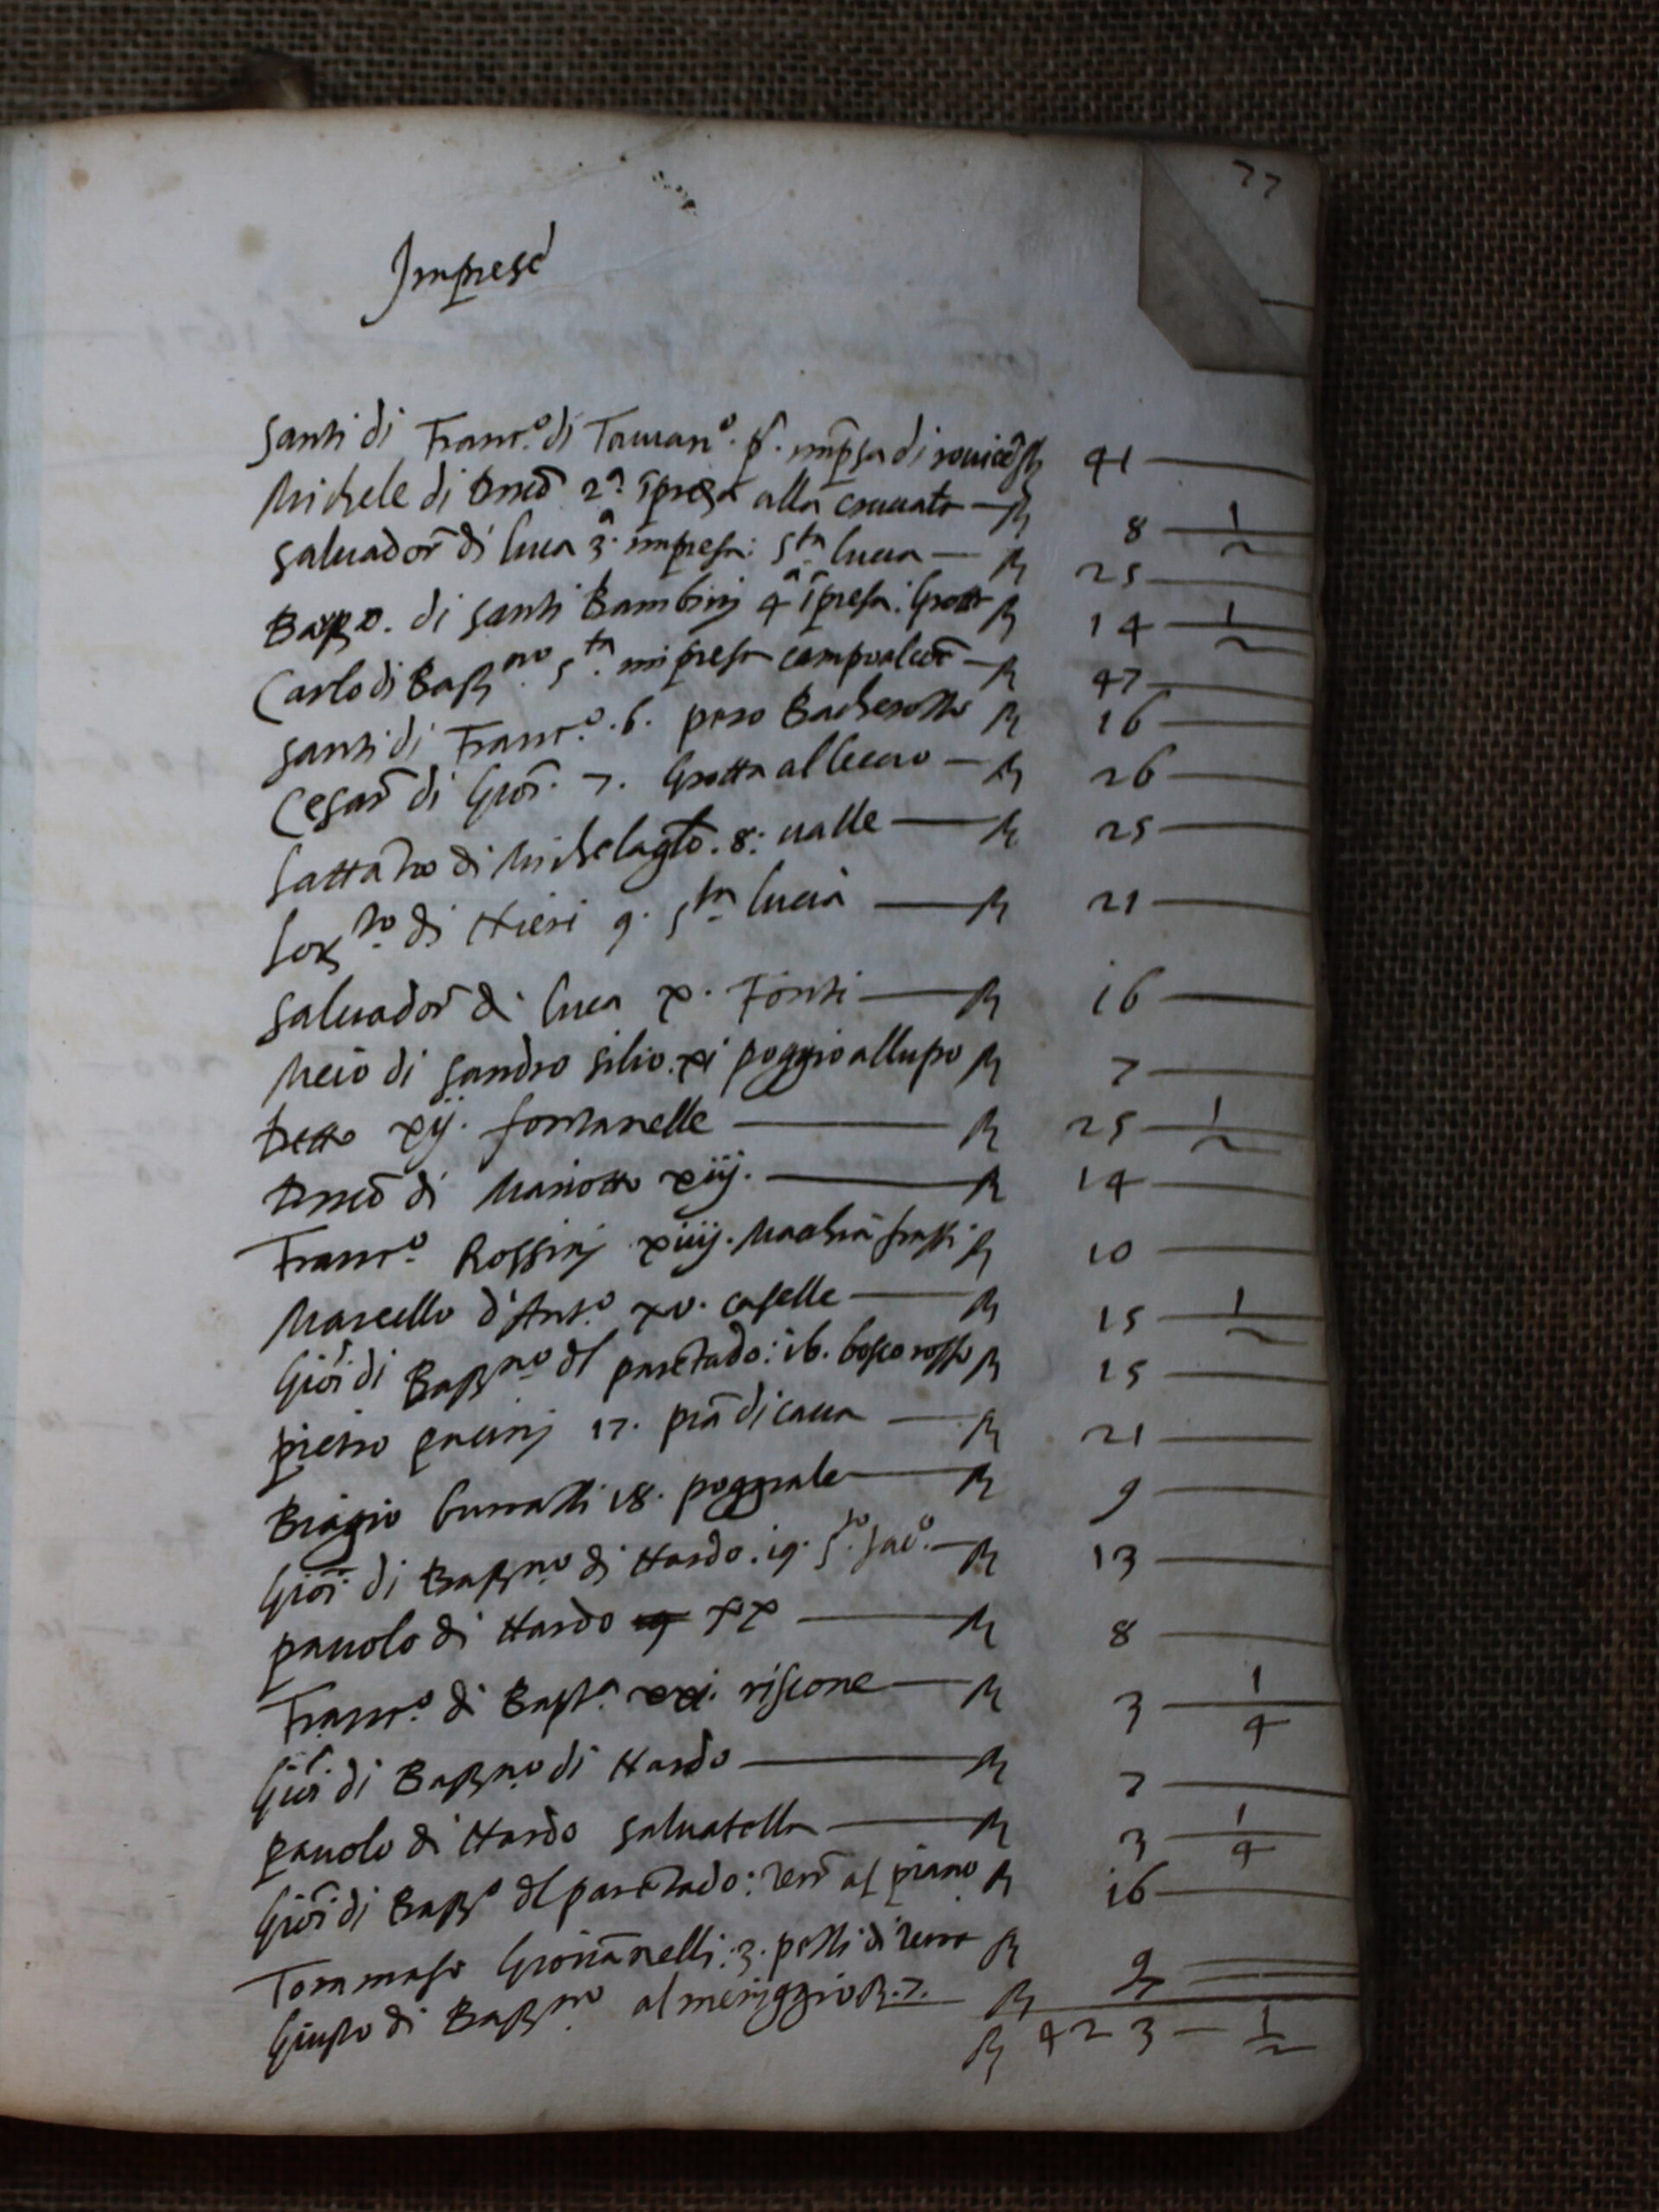 77
Imprese
Santi di Franc.º di Tauian.º p.ª imp̃sa di rouicc̃ R 41
Michele di Dom̃co 2ª ip̃resa alla crociata R 8 1/2
Saluador̃ di Luca 3ª impresa: S.ta Lucia R 25
Batt.º di Santi Bambinj 4ª ip̃resa: Grotti R 14 1/2
Carlo di Bast.no 5.ta impresa campoalcer̃ R 47
Santi di Franc.º 6. pozo Bacherotto R 16
Cesar̃ di Giõ. 7. Grotta al leccio R 26
Lattãtio di Michelagl̃o. 8: ualle R 25
Lor.zo di Nieri 9. S.ta Lucia R 21
Saluador̃ di Luca x. Fonti R 16
Meio di Sandro silio. xi poggio allupo R 7
Detto xij. fontanelle R 25 1/2
Dom̃co di Mariotto xiij. R 14
Franc.º Rossinj xiiij. Machia frassi R 10
Marcello d'Ant.º xv. caselle R 15 1/2
Giõ: di Bast.no dl paretado: 16. bosco rosso R 15
pietro pacinj 17. prã di caua R 21
Biagio burratti 18. poggiale R 9
Giõ: di Bast.no di Nardo. 19. S.to Jac.º R 13
pauolo di Nardo xx R 8
Franc.º di Bast.ª xxi. riscone R 3 1/4
Giõ: di Bast.no di Nardo R 7
pauolo di Nardo saluatella R 3 1/4
Giõ: di Bast.º dl paretado: terr̃ al piano R 16
Tommaso Giouãnelli: 3. pezzi di terra R 9
Giusto di Bast.no al meriggio R. 7. R
R 423 1/2